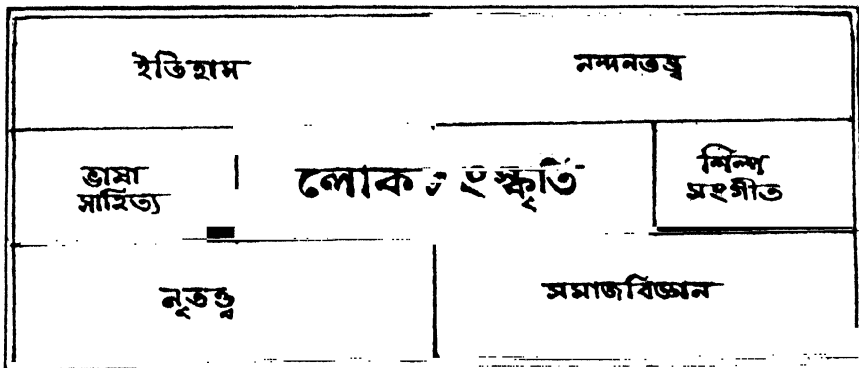 ইতিহাস
নন্দনতত্ত্ব
ভাষা
সাহিত্য
লোকসংস্কৃতি
শিল্প
সংগীত
নৃতত্ত্ব
সমাজবিজ্ঞান